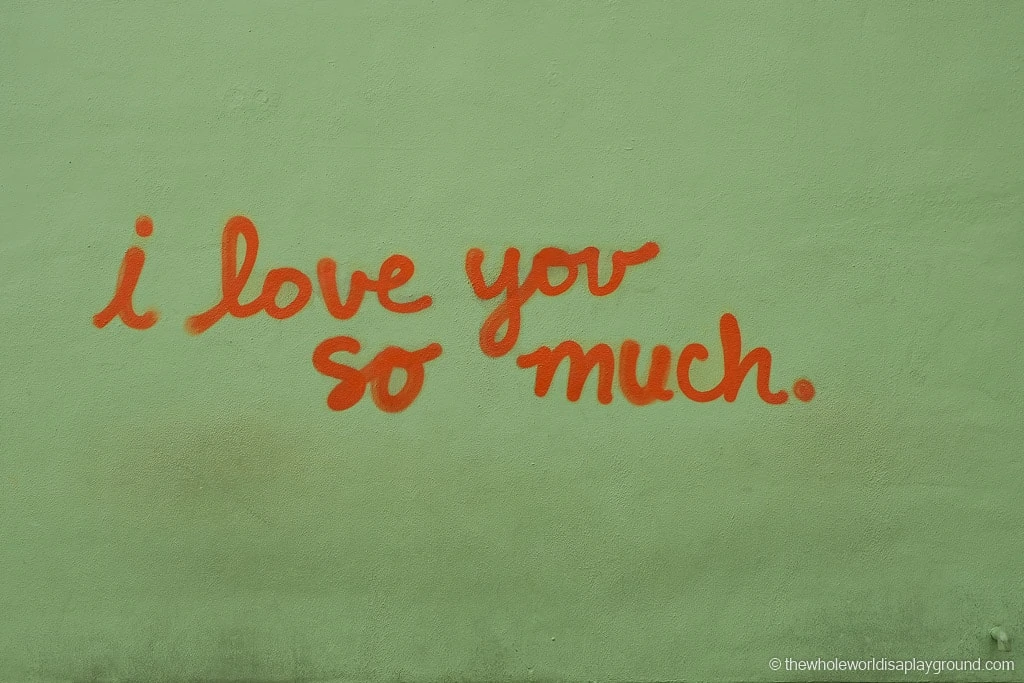 i love you
so much.
© thewholeworldisaplayground.com